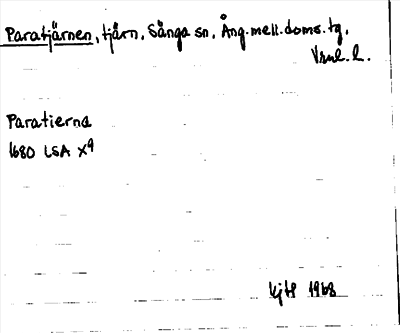 Paratjärnen, tjärn, Sånga sn, Ång. mell. doms. tg,
Vnl. l.
Paratierna
1680 LSA X9
1968